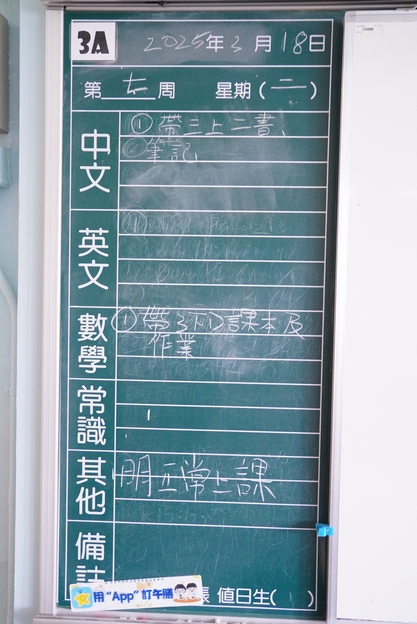 3A
2025年3月18日
第七周 星期(二)
中文
①帶三上二書、
②筆記
英文
數學
①帶3下D課本及
作業
常識
其他
明正常上課
備註
用"App"訂午膳
長 值日生( )